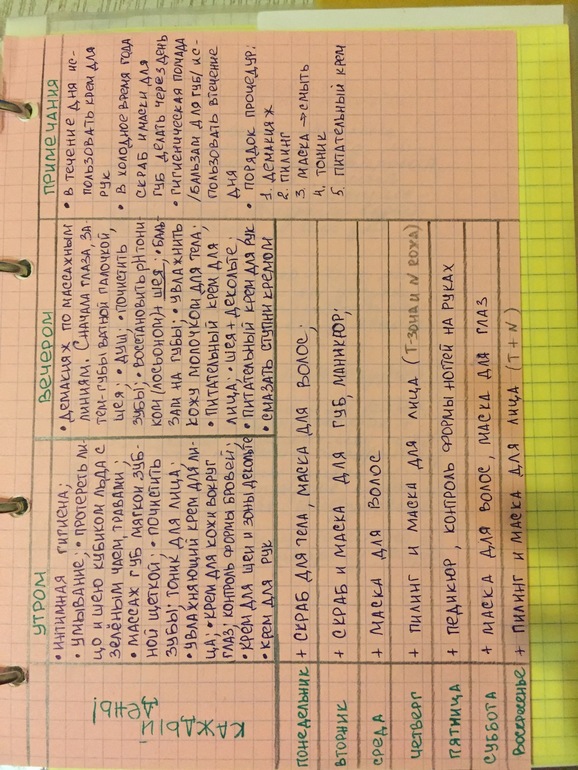 УТРОМ
• ИНТИМНАЯ ГИГИЕНА;
• УМЫВАНИЕ; • ПРОТЕРЕТЬ ЛИ-
ЦО И ШЕЮ КУБИКОМ ЛЬДА С
ЗЕЛЁНЫМ ЧАЕМ, ТРАВАМИ;
• МАССАЖ ГУБ МЯГКОЙ ЗУБ-
НОЙ ЩЕТКОЙ; • ПОЧИСТИТЬ
ЗУБЫ; ТОНИК ДЛЯ ЛИЦА;
• УВЛАЖНЯЮЩИЙ КРЕМ ДЛЯ ЛИ-
ЦА; • КРЕМ ДЛЯ КОЖИ ВОКРУГ
ГЛАЗ; КОНТРОЛЬ ФОРМЫ БРОВЕЙ;
• КРЕМ ДЛЯ ШЕИ И ЗОНЫ ДЕКОЛЬТЕ
• КРЕМ ДЛЯ РУК
ВЕЧЕРОМ
• ДЕМАКИЯЖ ПО МАССАЖНЫМ
ЛИНИЯМ. СНАЧАЛА ГЛАЗА, ЗА-
ТЕМ-ГУБЫ ВАТНОЙ ПАЛОЧКОЙ,
ШЕЯ; • ДУШ; • ПОЧИСТИТЬ
ЗУБЫ; • ВОССТАНОВИТЬ pH ТОНИ
КОМ (ЛОСЬОНОМ) + ШЕЯ; • БАЛЬ-
ЗАМ НА ГУБЫ; • УВЛАЖНИТЬ
КОЖУ МОЛОЧКОМ ДЛЯ ТЕЛА;
• ПИТАТЕЛЬНЫЙ КРЕМ ДЛЯ
ЛИЦА; • ШЕЯ + ДЕКОЛЬТЕ;
• ПИТАТЕЛЬНЫЙ КРЕМ ДЛЯ РУК
• СМАЗАТЬ СТУПНИ КРЕМОМ
ПРИМЕЧАНИЯ
• В ТЕЧЕНИЕ ДНЯ ИС-
ПОЛЬЗОВАТЬ КРЕМ ДЛЯ
РУК
• В ХОЛОДНОЕ ВРЕМЯ ГОДА
СКРАБ И МАСКИ ДЛЯ
ГУБ ДЕЛАТЬ ЧЕРЕЗ ДЕНЬ
• ГИГИЕНИЧЕСКАЯ ПОМАДА
/БАЛЬЗАМ ДЛЯ ГУБ/ ИС-
ПОЛЬЗОВАТЬ ВТЕЧЕНИЕ
ДНЯ
• ПОРЯДОК ПРОЦЕДУР:
1. ДЕМАКИЯЖ
2. ПИЛИНГ
3. МАСКА → СМЫТЬ
4. ТОНИК
5. ПИТАТЕЛЬНЫЙ КРЕМ
КАЖДЫЙ
ДЕНЬ!
ПОНЕДЕЛЬНИК + СКРАБ ДЛЯ ТЕЛА, МАСКА ДЛЯ ВОЛОС;
ВТОРНИК + СКРАБ И МАСКА ДЛЯ ГУБ, МАНИКЮР;
СРЕДА + МАСКА ДЛЯ ВОЛОС
ЧЕТВЕРГ + ПИЛИНГ И МАСКА ДЛЯ ЛИЦА (Т-ЗОНА И N КОЖА)
ПЯТНИЦА + ПЕДИКЮР, КОНТРОЛЬ ФОРМЫ НОГТЕЙ НА РУКАХ
СУББОТА + МАСКА ДЛЯ ВОЛОС, МАСКА ДЛЯ ГЛАЗ
ВОСКРЕСЕНЬЕ + ПИЛИНГ И МАСКА ДЛЯ ЛИЦА (Т + N)